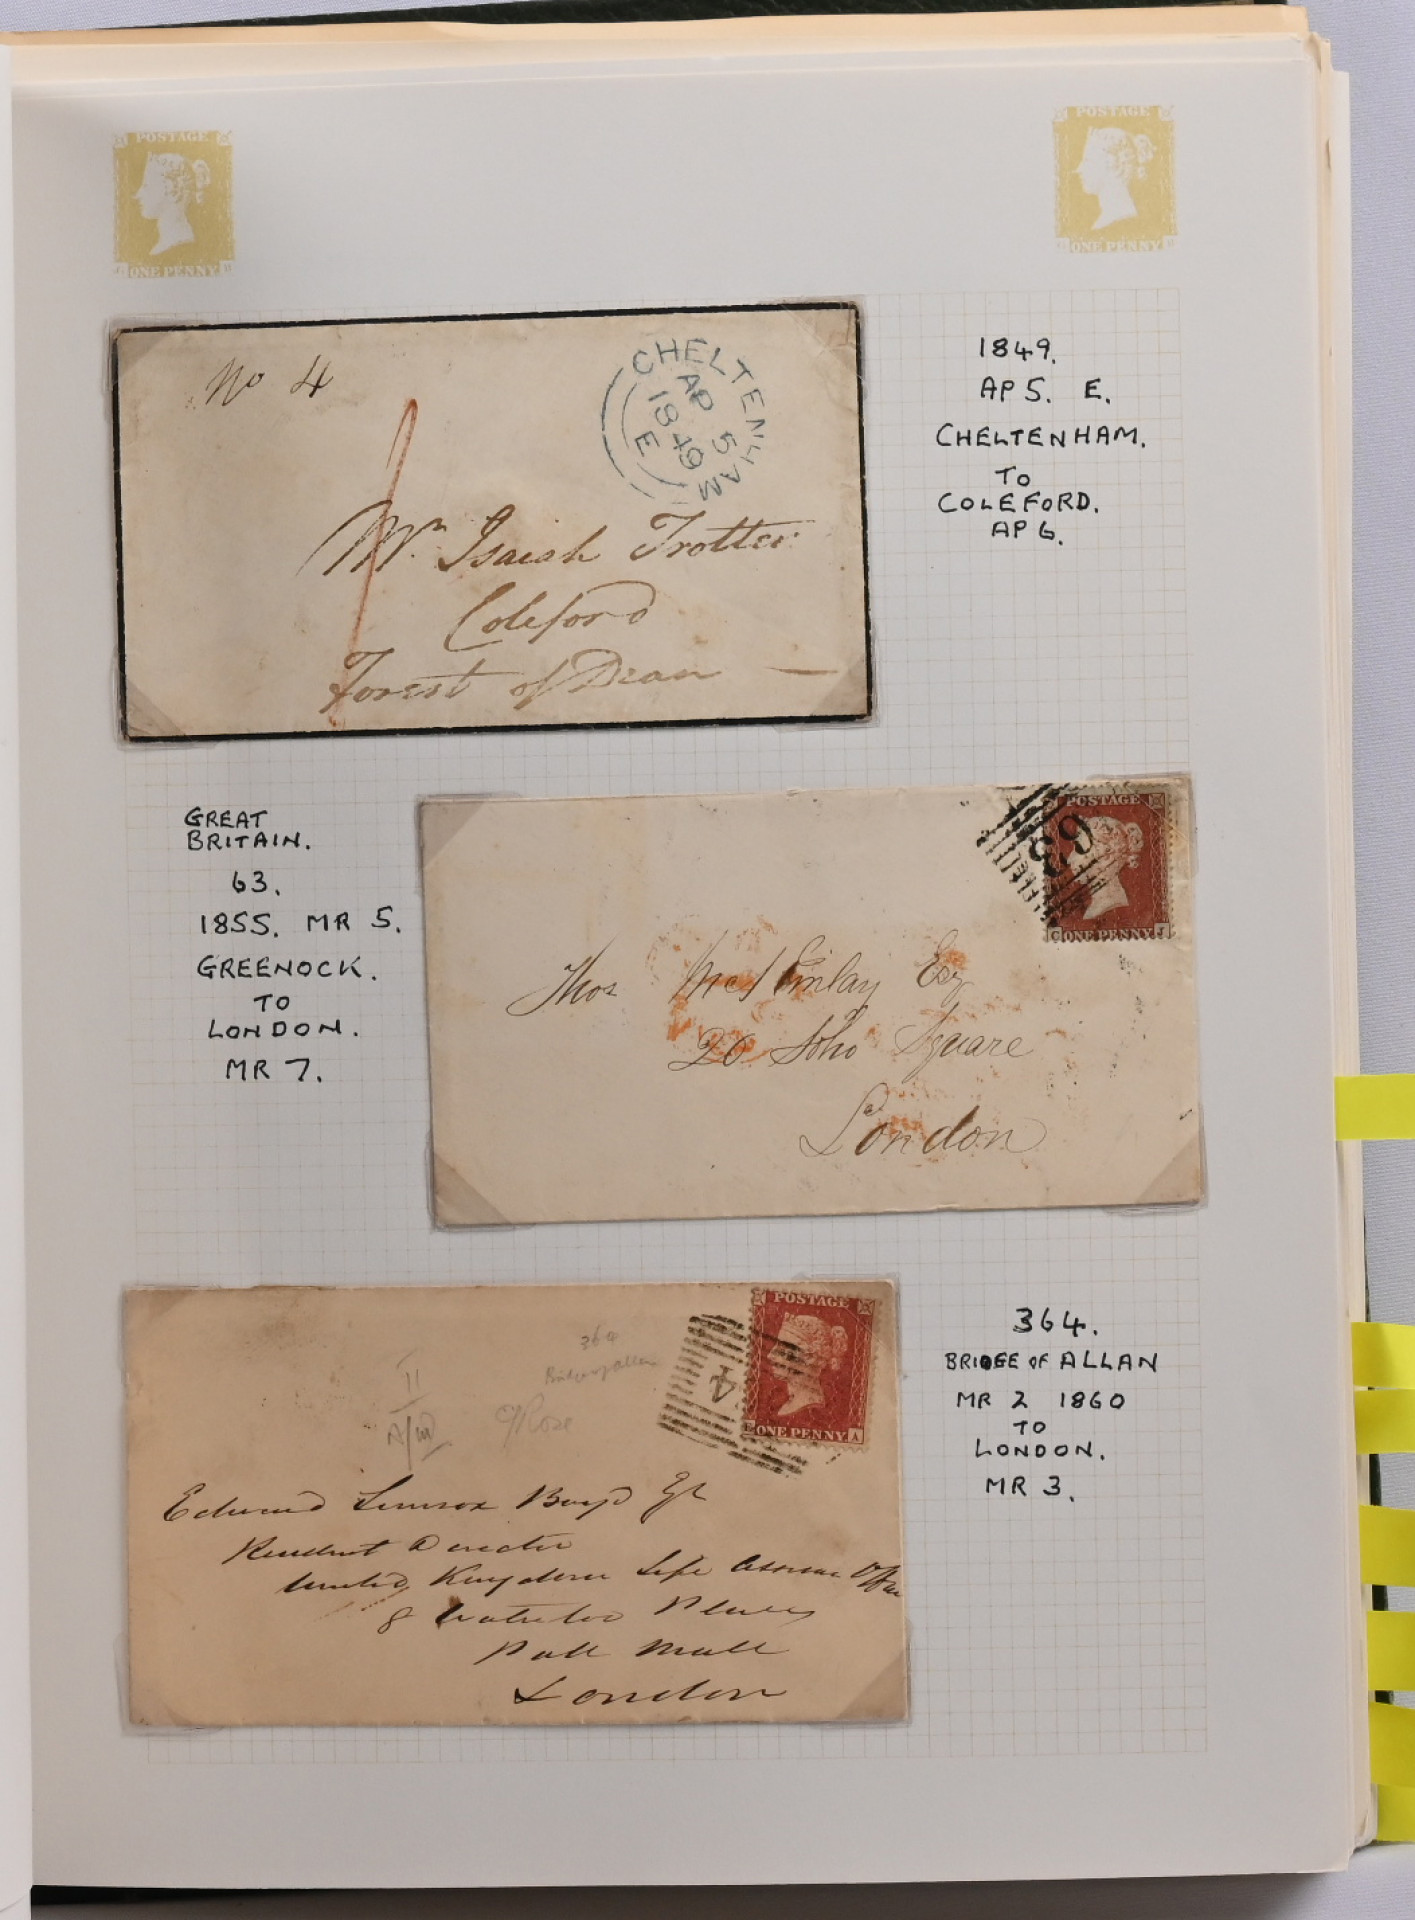 POSTAGE
ONE PENNY
POSTAGE
ONE PENNY
No 4
CHELTENHAM
AP 5
1849
E
Mr. Isaiah Trotter
Coleford
Forest of Dean
1849.
AP 5. E.
CHELTENHAM.
TO
COLEFORD.
AP 6.
GREAT
BRITAIN.
63.
1855. MR 5.
GREENOCK.
TO
LONDON.
MR 7.
POSTAGE
C ONE PENNY J
63
Thos Finlay Esq
20 Soho Square
London
POSTAGE
E ONE PENNY A
4
364
Edward Lennox Boyd Esq
Resident Director
United Kingdom Life Assurance Office
8 Waterloo Place
Pall Mall
London
364.
BRIDGE OF ALLAN
MR 2 1860
TO
LONDON.
MR 3.